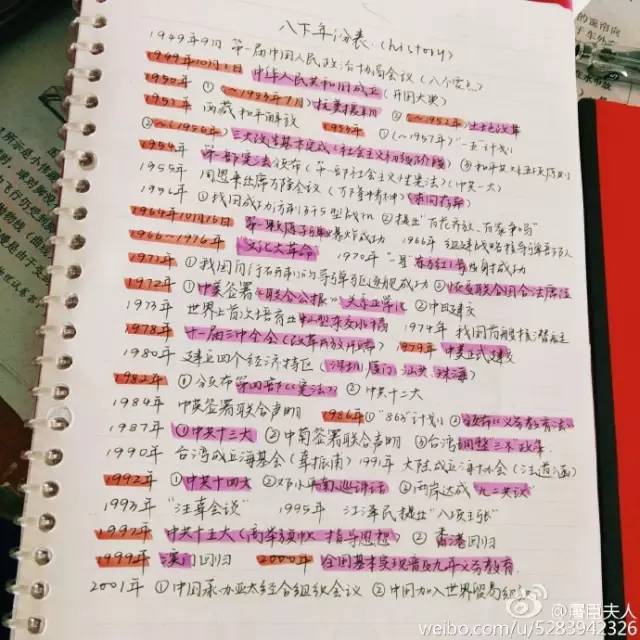 八下年份表.(history)
1949年9月 第一届中国人民政治协商会议
1949年10月1日 中华人民共和国成立(开国大典)
1950年 ①(~1953年7月)抗美援朝 ②(~1952年)土地改革
1951年 西藏和平解放 1953年 ①(~1957年)"一五"计划
②~(1956年) 三大改造基本完成(社会主义初级阶段) ③和平共处五项原则
1954年 第一部宪法颁布(第一部社会主义性宪法)(中共一大)
1955年 周恩来出席万隆会议(万隆精神)求同存异
1956年 ①我国成功 ②提出"百花齐放、百家争鸣"
1964年10月16日 第一颗原子弹爆炸成功 1966年 组建战略导弹部队
1966~1976年 文化大革命 1970年 "东方红1号"发射成功
1971年 ①我国 导弹驱逐舰成功 ②恢复联合国合法席位
1972年 ①中美签署《联合公报》关系正常化 ②中日建交
1973年 世界上首次培育出籼型杂交水稻 1974年 我国首艘核潜艇
1978年 十一届三中全会(改革开放开端) 1979年 中美正式建交
1980年 建立四个经济特区(深圳 厦门 汕头 珠海)
1982年 ①公布第四部《宪法》 ②中共十二大
1984年 中英签署联合声明 1986年 ①"863"计划 ②颁布《义务教育法》
1987年 ①中共十三大 ②中葡签署联合声明 ③台湾调整三不政策
1990年 台湾成立海基会(辜振甫) 1991年 大陆成立海协会(汪道涵)
1992年 ①中共十四大 ②邓小平南巡讲话 ③两岸达成"九二共识"
1993年 "汪辜会谈" 1995年 江泽民提出"八项主张"
1997年 中共十五大(高举旗帜 指导思想) ②香港回归
1999年 澳门回归 2000年 全国基本实现普及九年义务教育
2001年 ①中国承办亚太经合组织会议 ②中国加入世界贸易组织
@屠臣夫人
weibo.com/u/5283942326